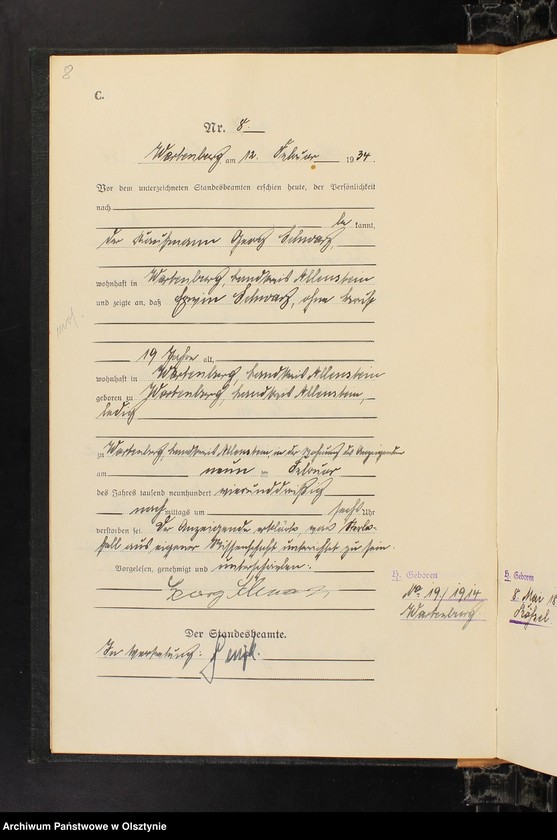 8
C.
Nr. 8.
Wartenburg, am 12. Februar 1934.
Vor dem unterzeichneten Standesbeamten erschien heute, der Persönlichkeit
nach
be kannt,
der Kaufmann Georg Schwarz,
wohnhaft in Wartenburg, Landkreis Allenstein
und zeigte an, daß Erwin Schwarz, ohne Beruf
19 Jahre alt,
wohnhaft in Wartenburg, Landkreis Allenstein
geboren zu Wartenburg, Landkreis Allenstein,
ledig
zu Wartenburg, Landkreis Allenstein, in der Wohnung des Anzeigenden
am neun ten Februar
des Jahres tausend neunhundert vierunddreißig
nach mittags um sechs Uhr
verstorben sei. Der Anzeigende erklärte, vom Sterbe-
fall aus eigener Wissenschaft unterrichtet zu sein.
Vorgelesen, genehmigt und unterschrieben:
Georg Schwarz
Der Standesbeamte.
In Vertretung:
H. Geboren
No 19/1914
Wartenburg
H. Geboren
8. Mai 18
Rößel
Archiwum Państwowe w Olsztynie